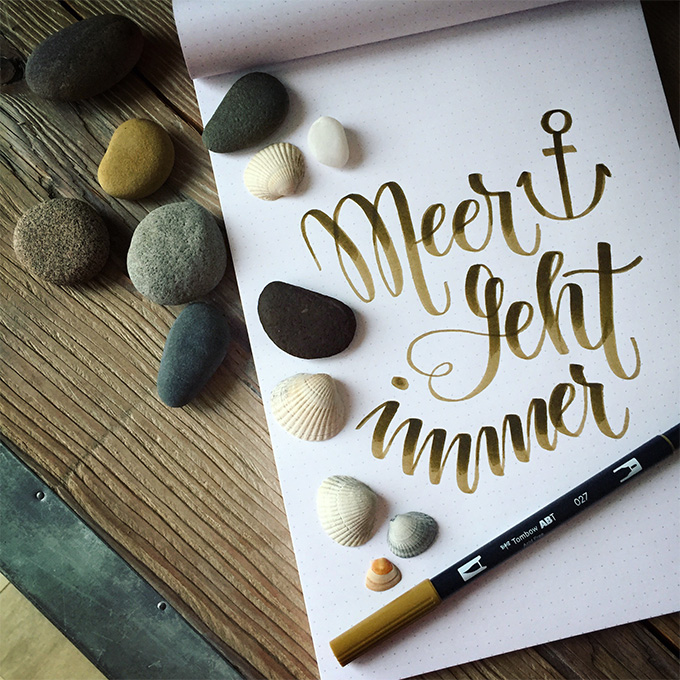 Meer
geht
immer
Tombow ABT 027